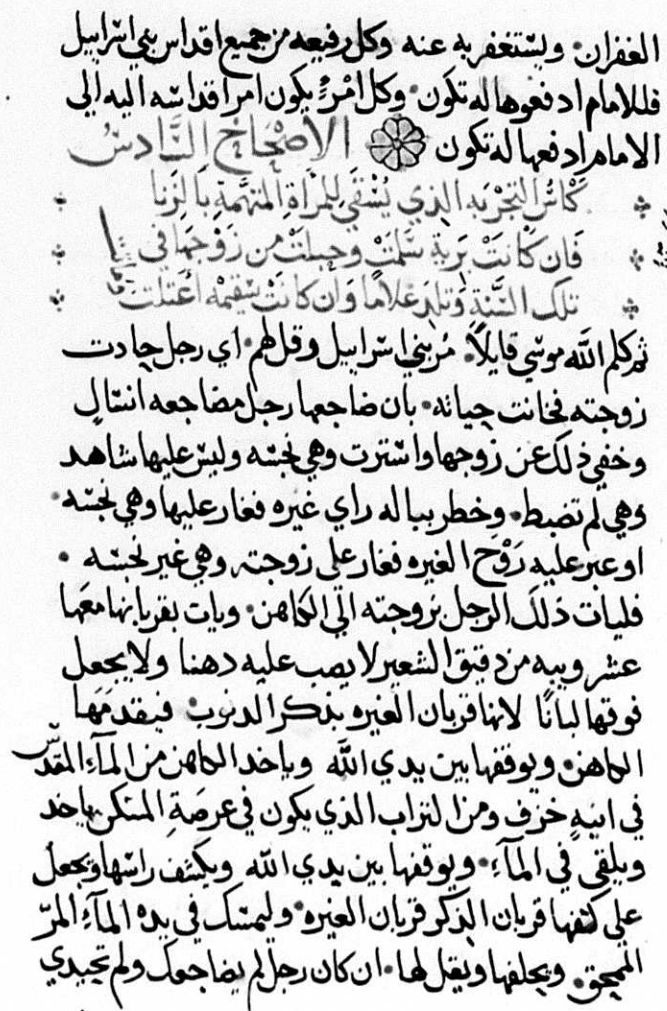 الغفران ويستغفر به عنه وكل رفيعه من جميع اقداس بني اسراييل
فللامام ادفعوها له تكون وكل امرءٍ يكون امر اقداسه اليه الي
الامام ادفعها له تكون الاصْحَاحُ السَّادسُ
كَاسُ التجْربَه الذي يُسْقَي للمرْاةِ المتهَّمةِ بالزنا
فَان كَانتْ بَريَة سَلمتْ وحبلتْ من زوْجهَا في
تلك السَّنةِ وتلد غلامًا وان كانتْ سَقيمْه اعتلت
ثم كلم الله موسي قايلاً مُر بني اسراييل وقل لهم اي رجل حادت
زوجته فخانت خيانه بان ضاجعها رجل مضاجعه انسال
وخفي ذلك عن زوجها واسترت وهي نجسه وليس عليها شاهد
وهي لم تضبط وخطر بباله راي غيره فغار علىها وهي نجسه
او عبر عليه رَوْح الغيره فغار علي زوجته وهي غير نجسه
فليات ذلك الرجل بزوجته الي الكاهن ويات بقربانها معها
عشر ويبه من دقيق الشعير لا يصب عليه دهنا ولا يجعل
فوقها لبانًا لانها قربان الغيره بذكر الدنوب فيقدمَها
الكاهن ويوقفها بين يدي الله وياخد الكاهن من المآءِ المقدّس
في انيهِ خزف ومن التراب الذي يكون في عرصَةِ المسكن ياخد
ويلقي في المآءِ ويوقفها بين يدي الله ويكشف راسها ويجعل
علي كتفها قربان الذكر قربان الغيره وليمسك في يده المآءِ المرّ
الممحق ويحلفها ويقل لها ان كان رجل لم يضاجعك ولم تحيدي